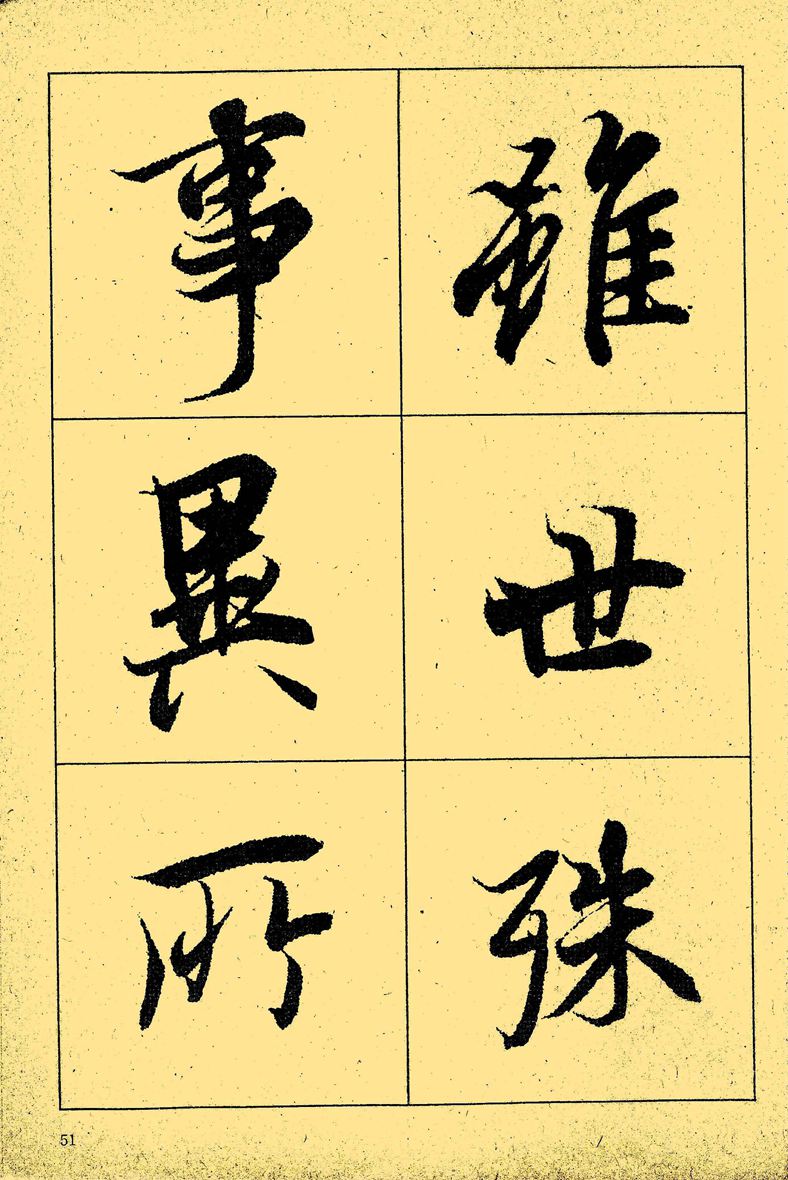 雖世殊
事異所
51